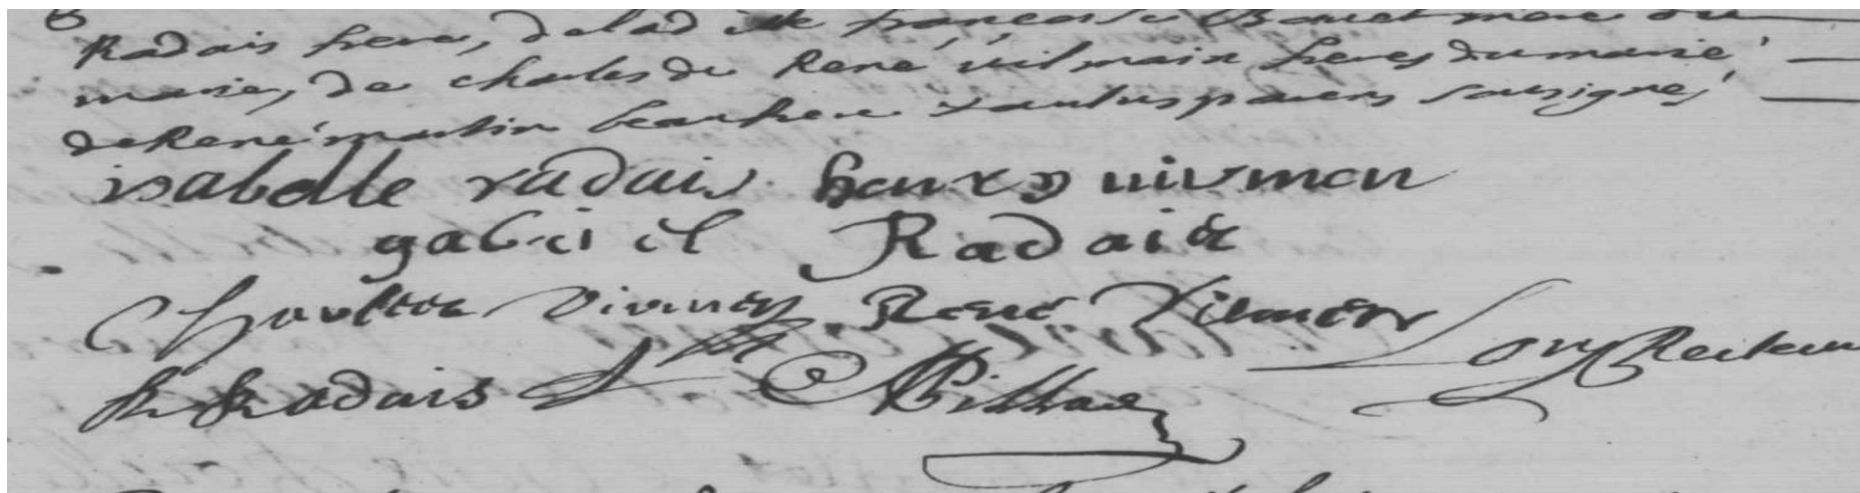 Radais frere, de lad ite françoise Bouet mere du
marié, de charles de René vilmain freres du marié
de René martin beauhere & autres parens sousignes
isabelle radais henry vivmen
gabriel Radais
Charles René Vilmen
R Radais Lory Recteur